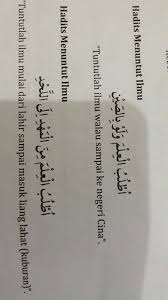 Hadits Menuntut Ilmu
اُطْلُبُ الْعِلْمَ وَلَوْ بِالصِّيْنِ
"Tuntutlah ilmu walau sampai ke negeri Cina".
Hadits Menuntut Ilmu
اُطْلُبُ الْعِلْمَ مِنَ الْمَهْدِ اِلَى اللَّحْدِ
"Tuntutlah ilmu mulai dari lahir sampai masuk liang lahat (kuburan)".